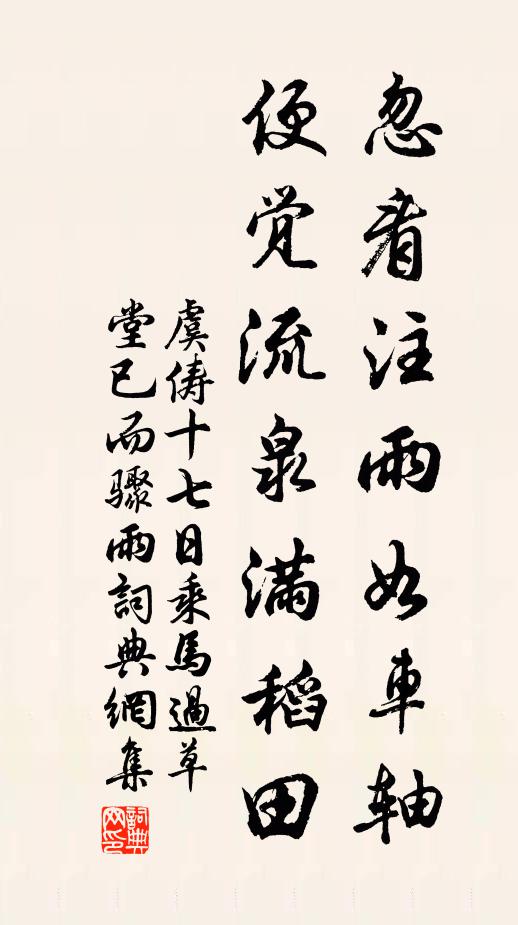 忽看注雨如車軸
便覺流泉滿稻田
虞儔十七日乘馬過草
堂已而驟雨詞典網集
詞典
网印